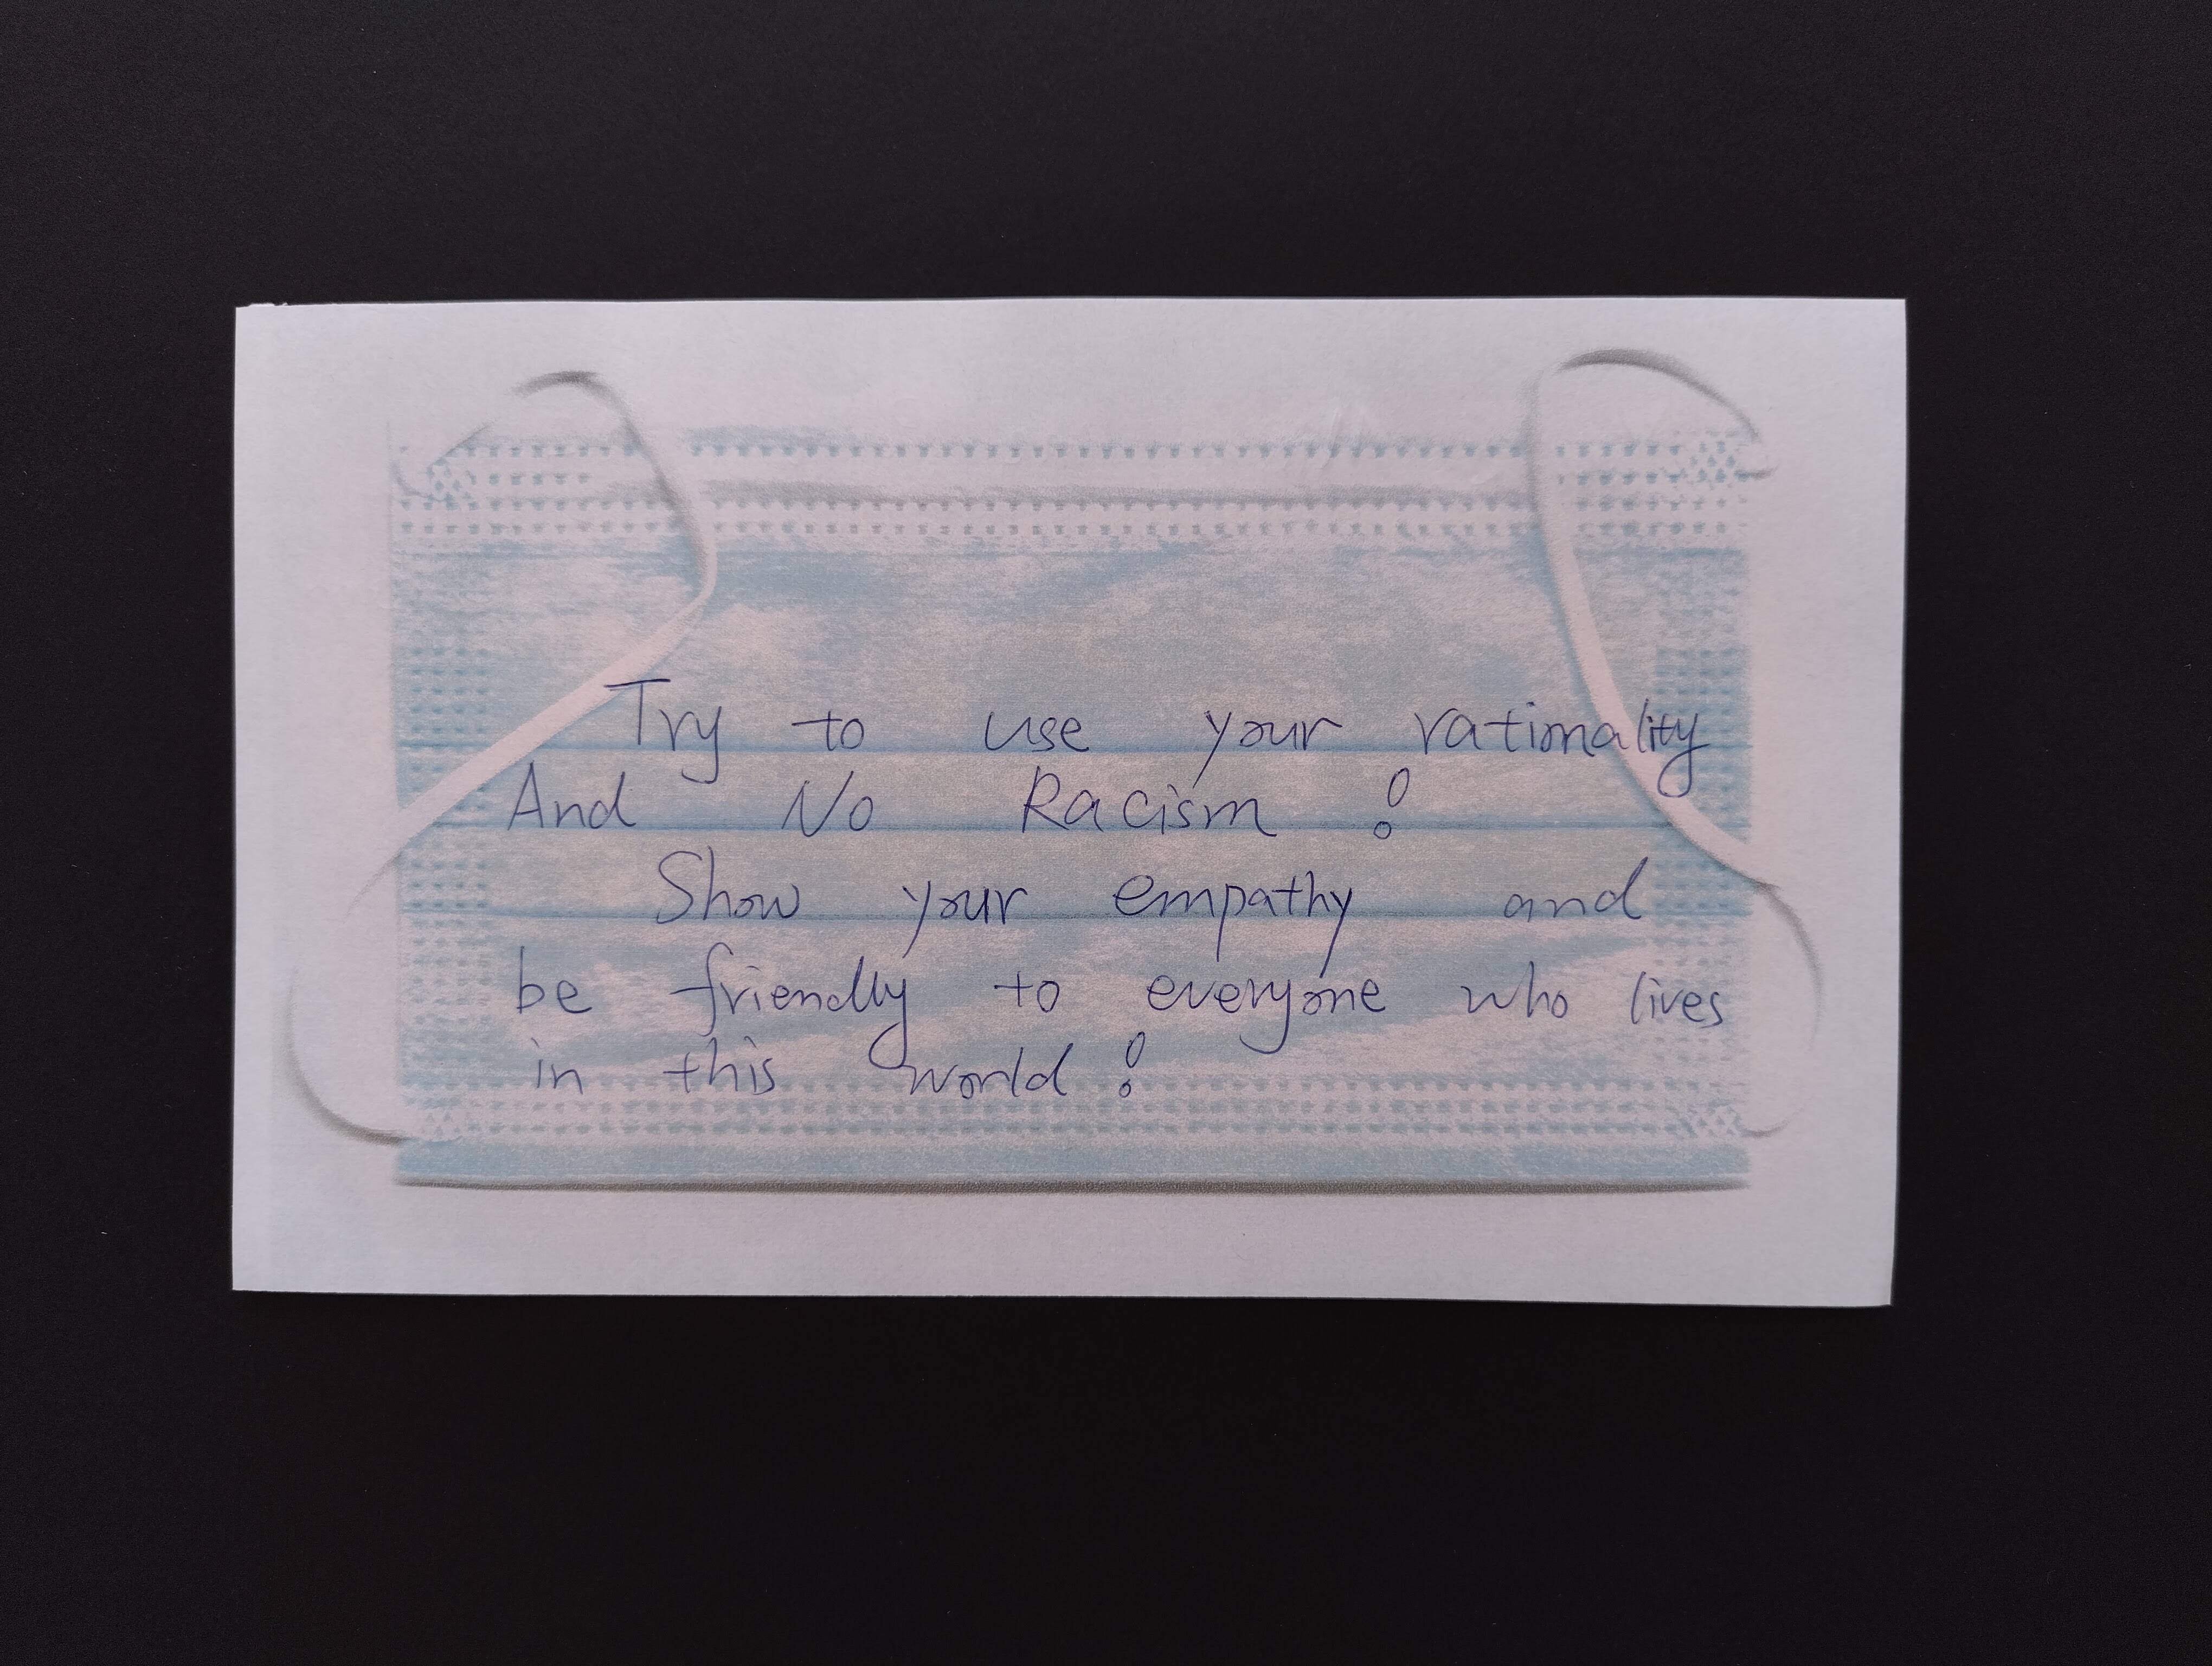 Try to use your rationality
And No Racism !
Show your empathy and
be friendly to everyone who lives
in this world !